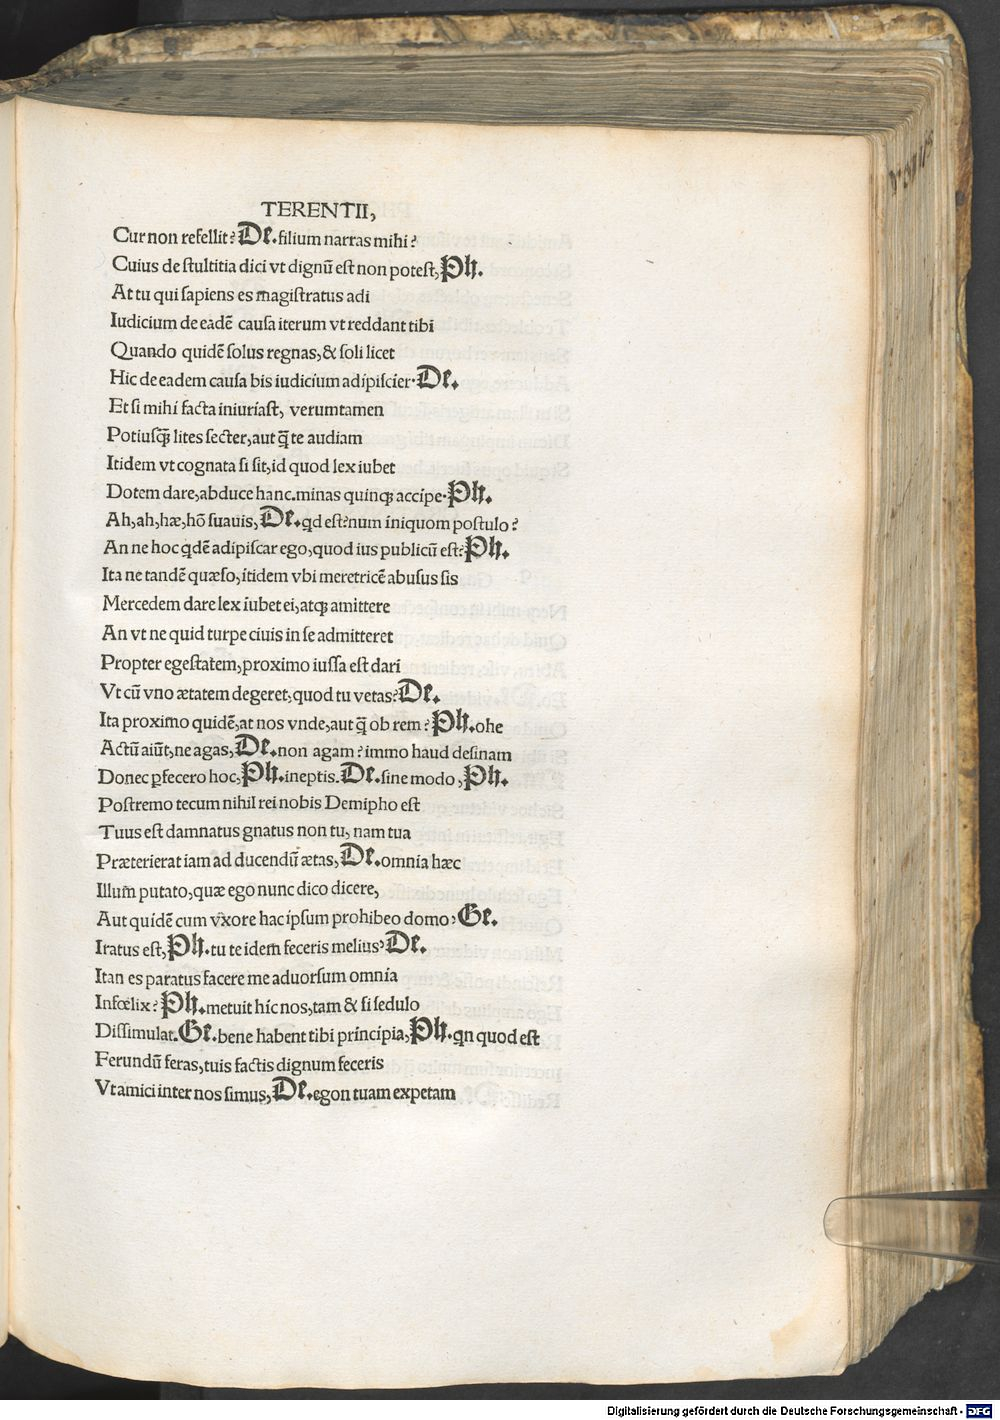 TERENTII,
Cur non refellit? De. filium narras mihi?
Cuius de stultitia dici vt dignū est non potest, Ph.
At tu qui sapiens es magistratus adi
Iudicium de eadē causa iterum vt reddant tibi
Quando quidē solus regnas, & soli licet
Hic de eadem causa bis iudicium adipiscier. De.
Et si mihi facta iniuriast, verumtamen
Potiusq̃ lites secter, aut q̃ te audiam
Itidem vt cognata si sit, id quod lex iubet
Dotem dare, abduce hanc. minas quinqꝫ accipe. Ph.
Ah, ah, hæ, hō suauis, De. qd est? num iniquom postulo?
An ne hoc qdē adipiscar ego, quod ius publicū est? Ph.
Ita ne tandē quæso, itidem vbi meretricē abusus sis
Mercedem dare lex iubet ei, atqꝫ amittere
An vt ne quid turpe ciuis in se admitteret
Propter egestatem, proximo iussa est dari
Vt cū vno ætatem degeret, quod tu vetas? De.
Ita proximo quidē, at nos vnde, aut q̃ ob rem? Ph. ohe
Actū aiūt, ne agas, De. non agam? immo haud desinam
Donec ꝑfecero hoc, Ph. ineptis. De. sine modo, Ph.
Postremo tecum nihil rei nobis Demipho est
Tuus est damnatus gnatus non tu, nam tua
Præterierat iam ad ducendū ætas, De. omnia hæc
Illum putato, quæ ego nunc dico dicere,
Aut quidē cum vxore hac ipsum prohibeo domo. Ge.
Iratus est, Ph. tu te idem feceris melius? De.
Itan es paratus facere me aduorsum omnia
Infœlix? Ph. metuit hic nos, tam & si sedulo
Dissimulat. Ge. bene habent tibi principia, Ph. qn quod est
Ferundū feras, tuis factis dignum feceris
Vt amici inter nos simus, De. egon tuam expetam
Digitalisierung gefördert durch die Deutsche Forschungsgemeinschaft - DFG